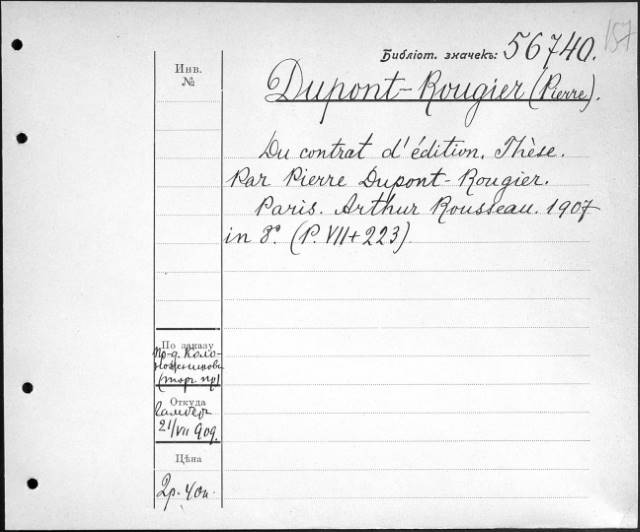 157
Библіот. значекъ: 56740.
Инв.
№
Dupont-Rougier (Pierre).
Du contrat d'édition. Thèse.
Par Pierre Dupont-Rougier.
Paris. Arthur Rousseau. 1907
in 8°. (P. VII + 223)
По заказу
пр-д.
(торг пр)
Откуда
21/VII 909.
Цѣна
2р. 40к.